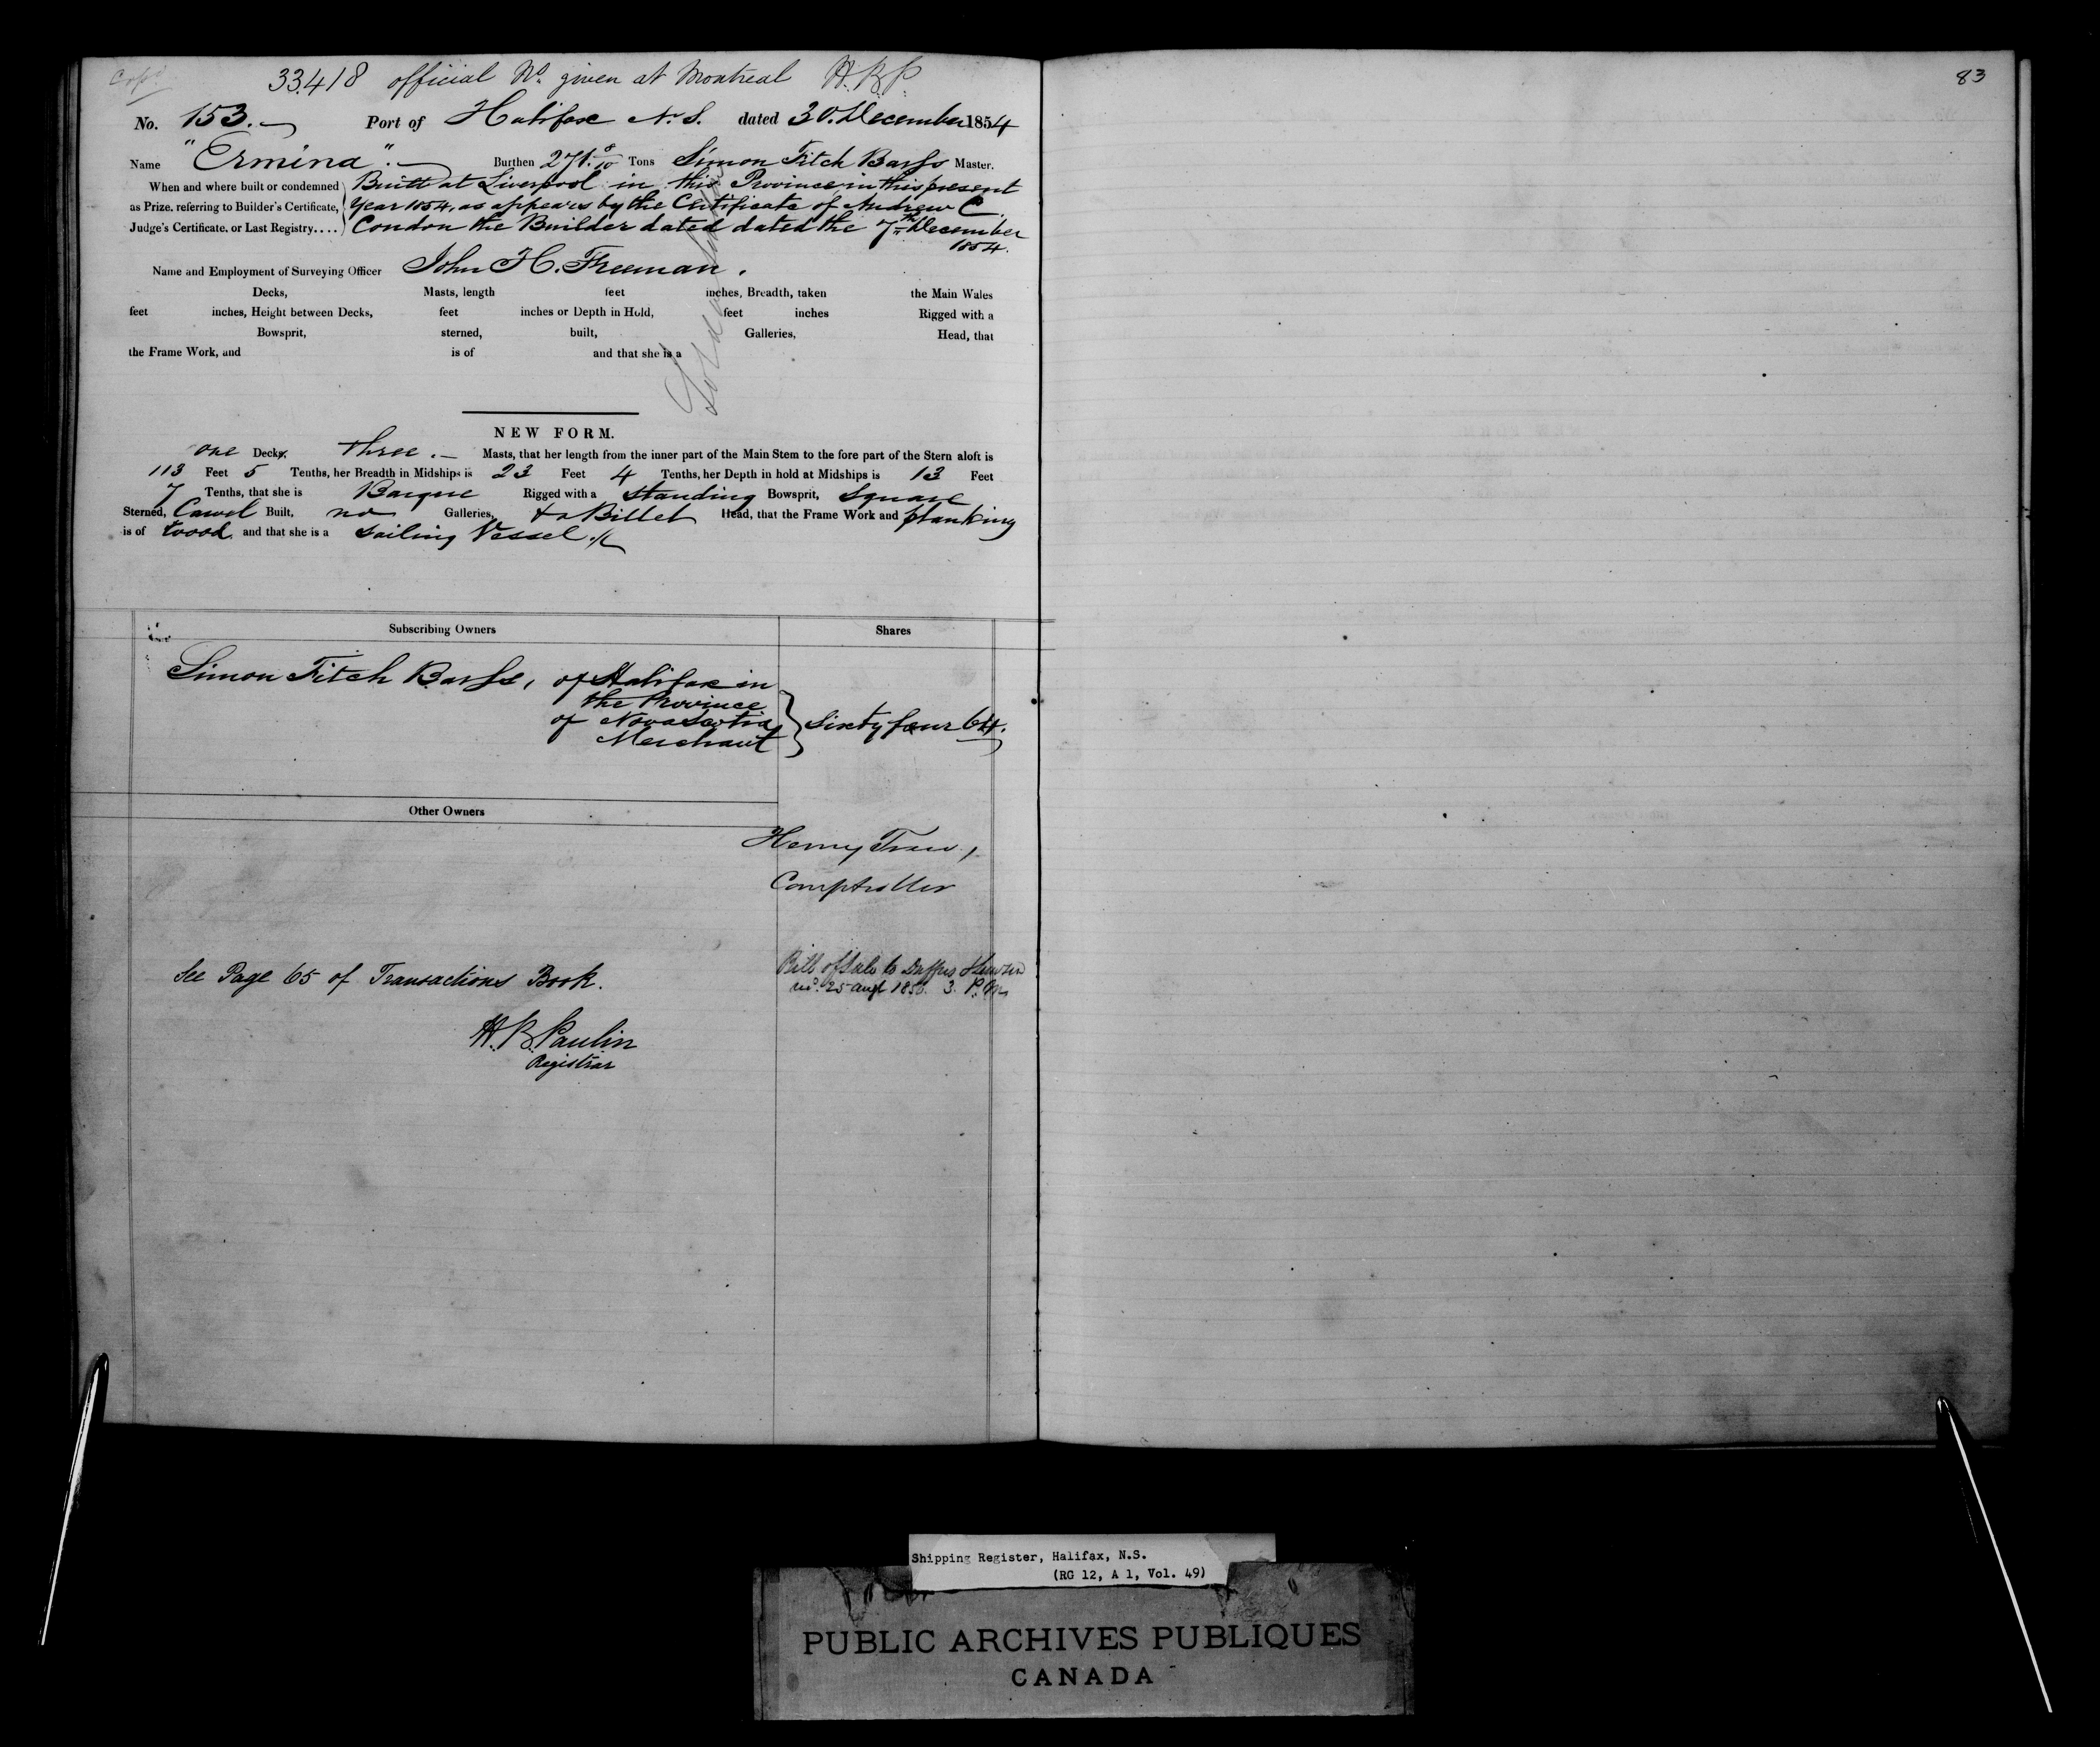 33.418 official No. given at Montreal H.B.P.
No. 153. Port of Halifax N.S. dated 30. December 1854
Name "Ermina". Burthen 271. 8/10 Tons Simon Fitch Barss Master.
When and where built or condemned as Prize, referring to Builder's Certificate, Judge's Certificate, or Last Registry....
Built at Liverpool in this Province in this present
Year 1854, as appears by the Certificate of Andrew C.
Condon the Builder dated dated the 7th December
1854.
Name and Employment of Surveying Officer John H. Freeman.
Decks, Masts, length feet inches, Breadth, taken the Main Wales
feet inches, Height between Decks, feet inches or Depth in Hold, feet inches Rigged with a
Bowsprit, sterned, built, Galleries, Head, that
the Frame Work, and is of and that she is a
NEW FORM.
one Decks. three. Masts, that her length from the inner part of the Main Stem to the fore part of the Stern aloft is
113 Feet 5 Tenths, her Breadth in Midships is 23 Feet 4 Tenths, her Depth in hold at Midships is 13 Feet
7 Tenths, that she is Barque Rigged with a standing Bowsprit, square
Sterned, Carvel Built, no Galleries, & a Billet Head, that the Frame Work and planking
is of wood. and that she is a sailing Vessel.
Subscribing Owners Shares
Simon Fitch Barss, of Halifax in
the Province
of Nova Scotia
Merchant
Sixty four 64.
Other Owners
Henry Trew,
Comptroller
See Page 65 of Transactions Book.
Bill of Sale to Duffus
25 Augt 3. P.M.
H.B. Paulin
Registrar
83
Shipping Register, Halifax, N.S.
(RG 12, A 1, Vol. 49)
PUBLIC ARCHIVES PUBLIQUES
CANADA